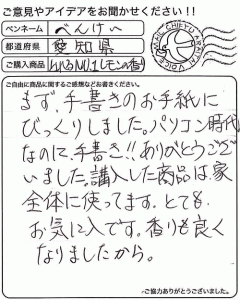 ご意見やアイデアをお聞かせください!!
ペンネーム べんけい
都道府県 愛知県
ご購入商品
ご自由に商品に関するご感想などお書きください。
まず、手書きのお手紙に
びっくりしました。パソコン時代
なのに、手書き!!ありがとうござ
いました。購入した商品は家
全体に使ってます。とても
お気に入です。香りも良く
なりましたから。
ご協力ありがとうございました。